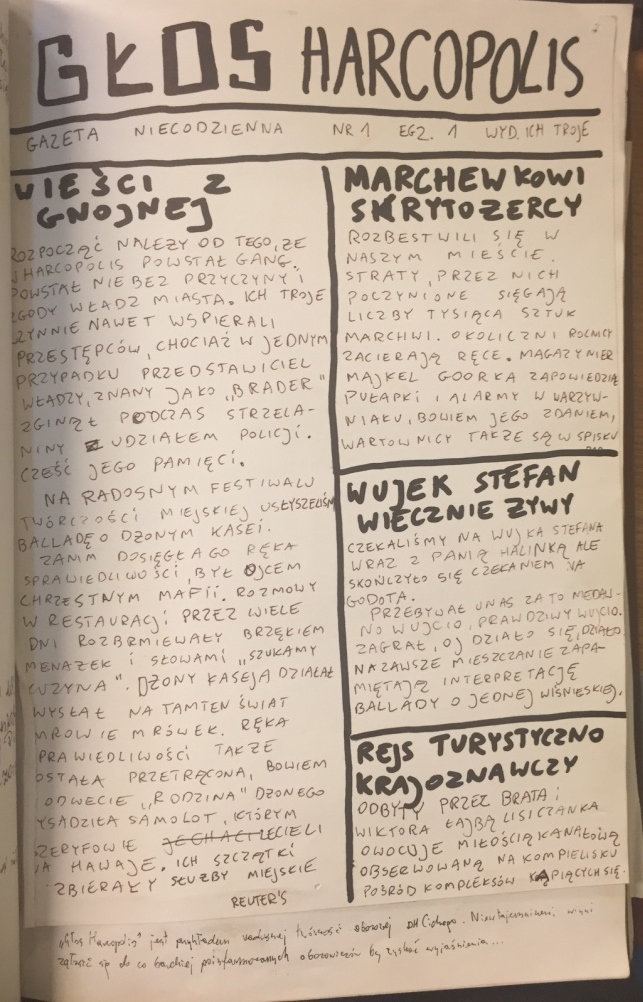 GŁOS HARCOPOLIS
GAZETA NIECODZIENNA NR 1 EGZ. 1 WYD. ICH TROJE
WIEŚCI Z
GNOJNEJ
ROZPOCZĄĆ NALEŻY OD TEGO, ŻE
W HARCOPOLIS POWSTAŁ GANG.
POWSTAŁ NIE BEZ PRZYCZYNY I
ZGODY WŁADZ MIASTA. ICH TROJE
CZYNNIE NAWET WSPIERALI
PRZESTĘPCÓW, CHOCIAŻ W JEDNYM
PRZYPADKU PRZEDSTAWICIEL
WŁADZY, ZNANY JAKO „BRADER"
ZGINĄŁ PODCZAS STRZELA-
NINY Z UDZIAŁEM POLICJI.
CZEŚĆ JEGO PAMIĘCI.
NA RADOSNYM FESTIWALU
TWÓRCZOŚCI MIEJSKIEJ USŁYSZELIŚM
BALLADĘ O DŻONYM KASEI.
ZANIM DOSIĘGŁA GO RĘKA
SPRAWIEDLIWOŚCI, BYŁ OJCEM
CHRZESTNYM MAFII. ROZMOWY
W RESTAURACJI PRZEZ WIELE
DNI ROZBRMIEWAŁY BRZĘKIEM
MENAŻEK I SŁOWAMI „SZUKAMY
CUZYNA". DŻONY KASEJA DZIAŁAŁ
WYSŁAŁ NA TAMTEN ŚWIAT
MROWIE MRÓWEK. RĘKA
PRAWIEDLIWOŚCI TAKŻE
OSTAŁA PRZETRĄCONA, BOWIEM
ODWECIE „RODZINA" DŻONEGO
YSADZIŁA SAMOLOT, KTÓRYM
SZERYFOWIE JECHALI LECIELI
NA HAWAJE. ICH SZCZĄTKI
ZBIERAŁY SŁUŻBY MIEJSKIE
REUTER'S
MARCHEWKOWI
SKRYTOŻERCY
ROZBESTWILI SIĘ W
NASZYM MIEŚCIE.
STRATY, PRZEZ NICH
POCZYNIONE SIĘGAJĄ
LICZBY TYSIĄCA SZTUK
MARCHWI. OKOLICZNI ROLNICY
ZACIERAJĄ RĘCE. MAGAZYNIER
MAJKEL GOORKA ZAPOWIEDZIA
PUŁAPKI I ALARMY W WARZYW-
NIAKU, BOWIEM JEGO ZDANIEM,
WARTOWNICY TAKŻE SĄ W SPISKU
WUJEK STEFAN
WIECZNIE ŻYWY
CZEKALIŚMY NA WUJKA STEFANA
WRAZ Z PANIĄ HALINKĄ ALE
SKOŃCZYŁO SIĘ CZEKANIEM NA
GODOTA.
PRZEBYWAŁ U NAS ZA TO MEDAL-
NO WUJCIO, PRAWDZIWY WUJCIO.
ZAGRAŁ, OJ DZIAŁO SIĘ, DZIAŁO.
NA ZAWSZE MIESZCZANIE ZAPA-
MIĘTAJĄ INTERPRETACJĘ
BALLADY O JEDNEJ WIŚNIESKIEJ.
REJS TURYSTYCZNO
KRAJOZNAWCZY
ODBYTY PRZEZ BRATA I
WIKTORA ŁAJBĄ LISICZANKA
OWOCUJE MIŁOŚCIĄ KANAŁOWĄ
OBSERWOWANĄ NA KĄPIELISKU
POŚRÓD KOMPLEKSÓW KĄPIĄCYCH SIĘ.
„Głos Harcopolis" jest przykładem twórczości obozowej DH Cichego. Niewtajemniczeni winni
zgłosić się do co bardziej poinformowanych obozowiczów by zyskać wyjaśnienia...